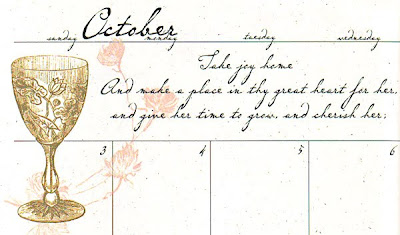 October
sunday monday tuesday wednesday
Take joy home
And make a place in thy great heart for her,
and give her time to grow, and cherish her;
3 4 5 6